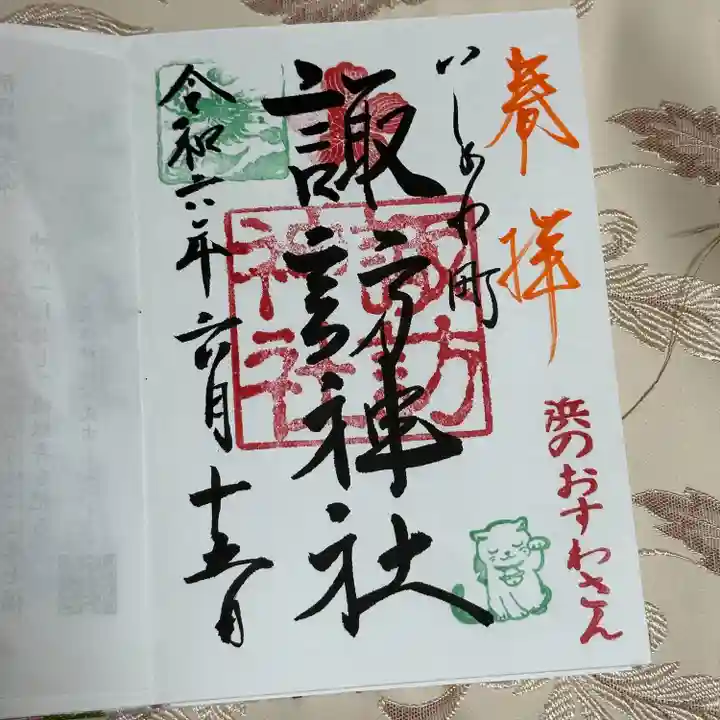 奉拝
浜のおすわさん
いしあわ町
諏訪神社
諏訪
神社
令和六年六月十五日